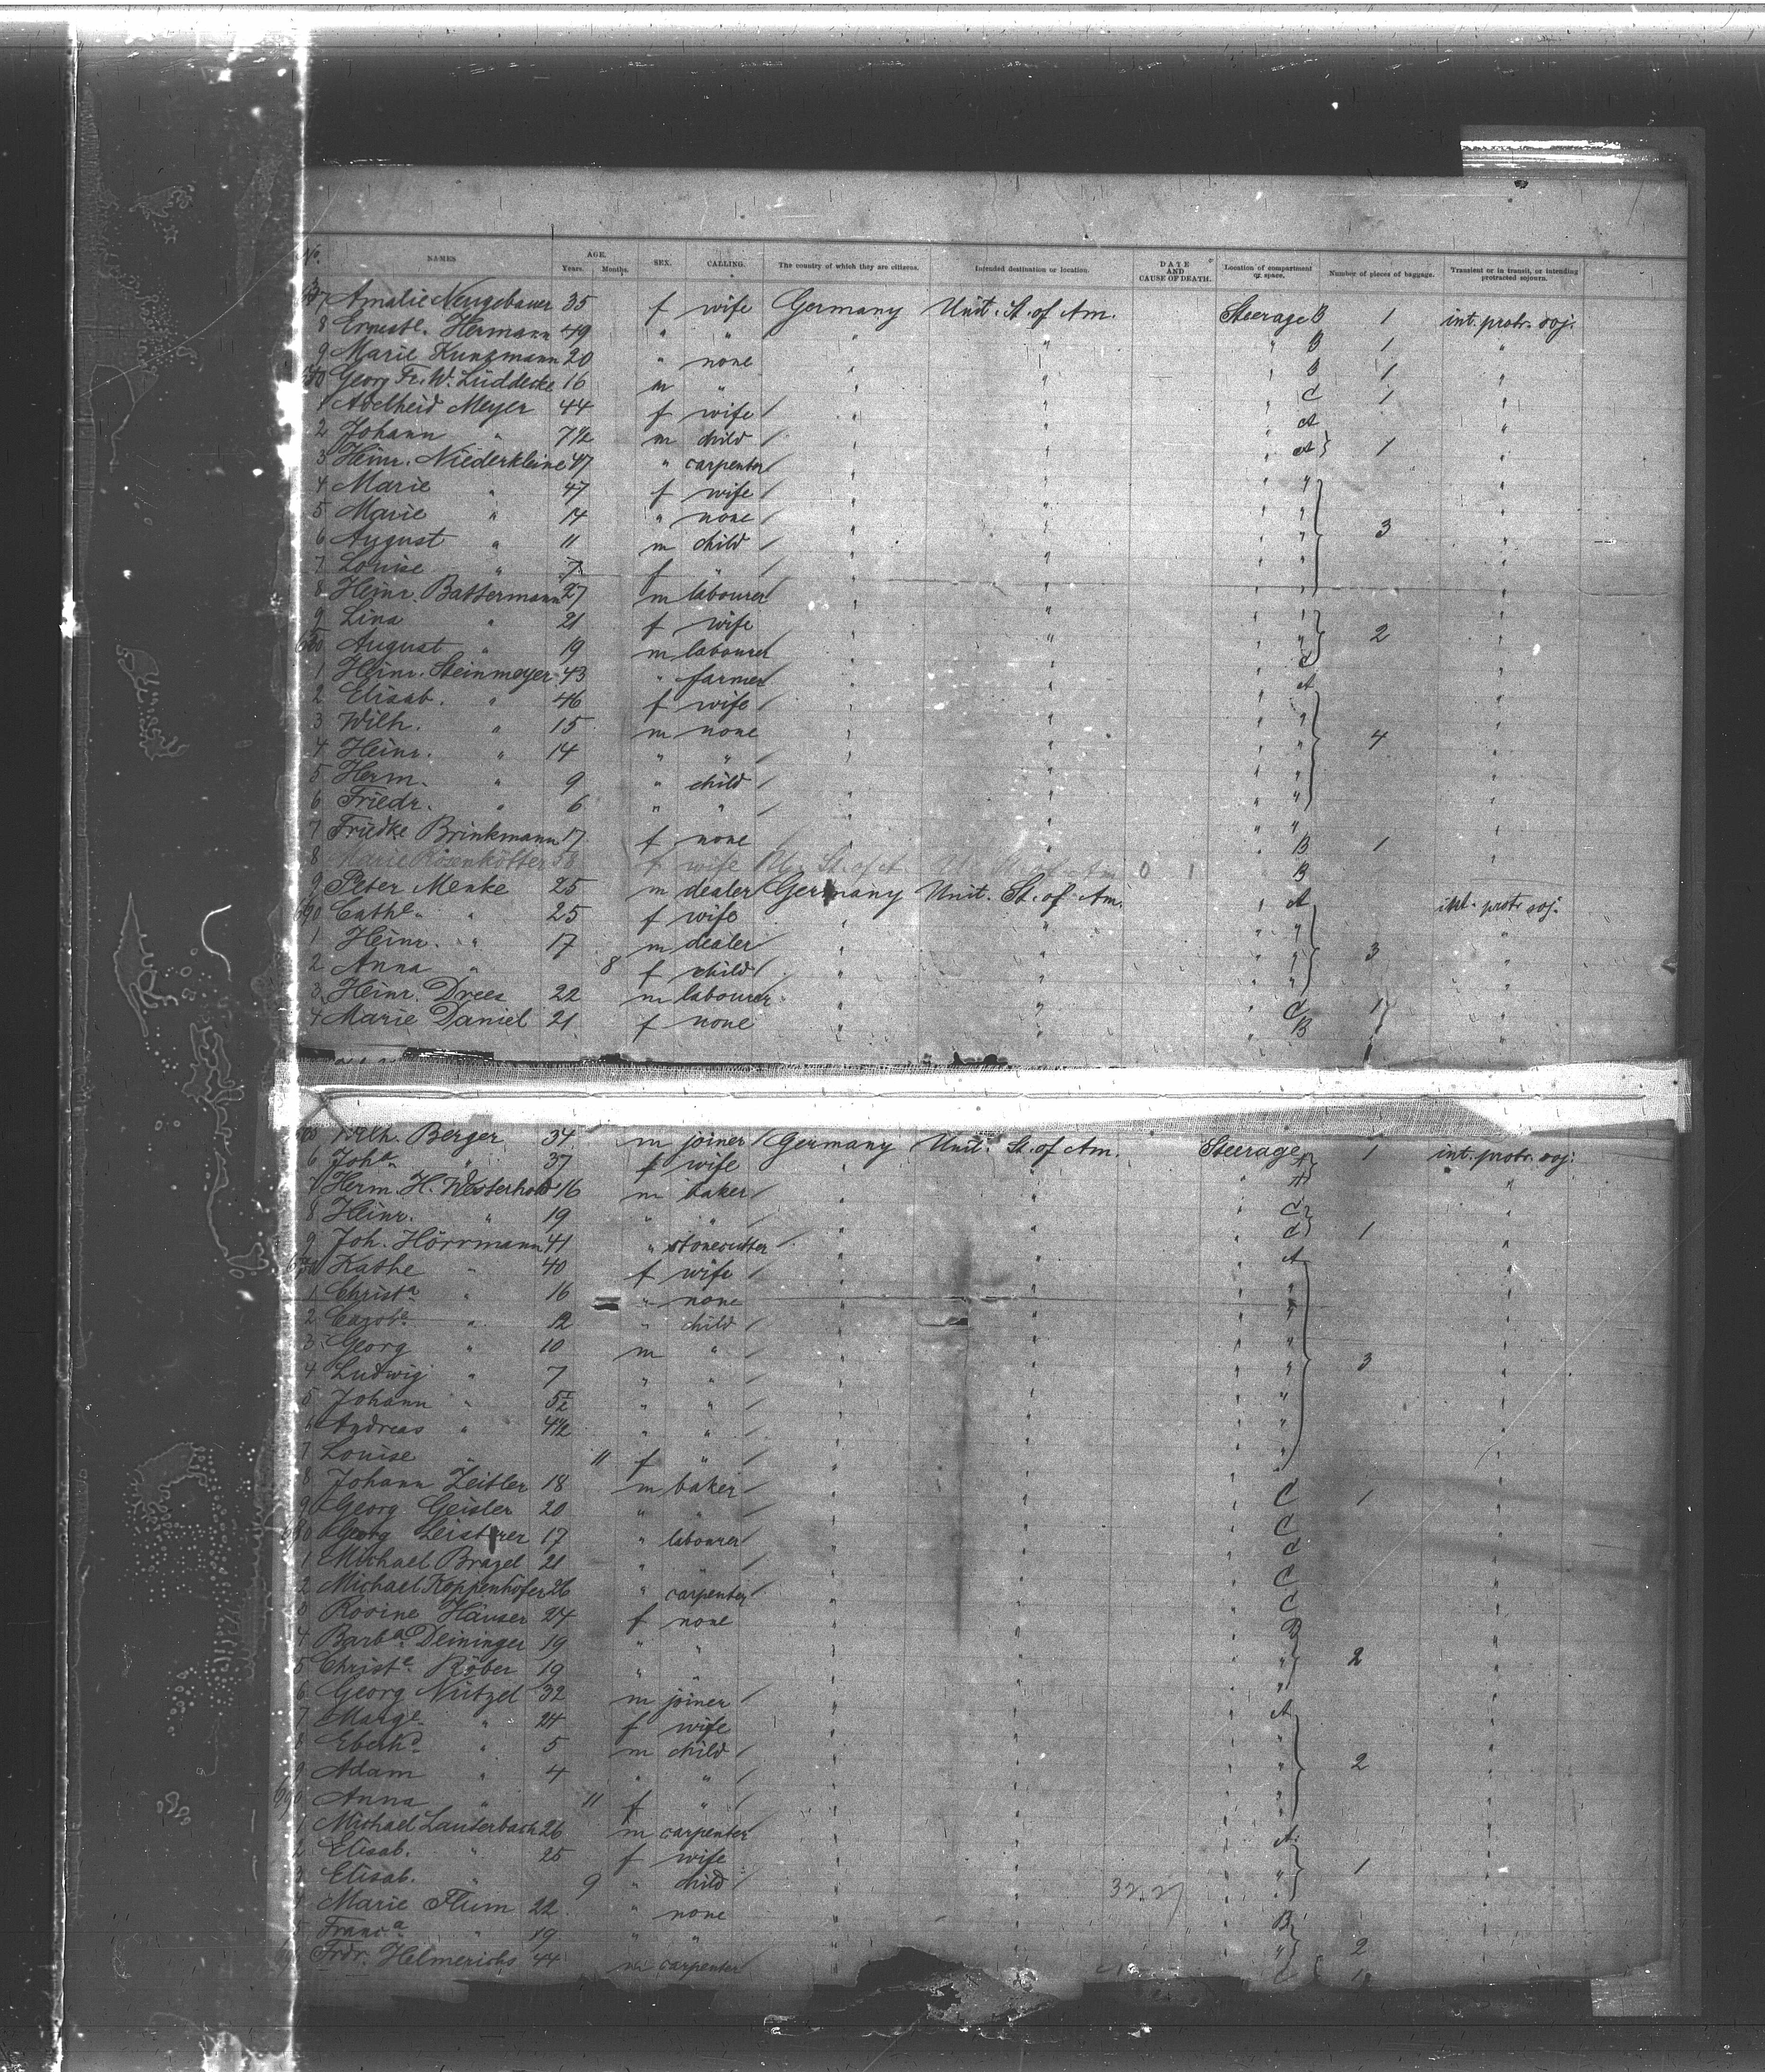 No. NAMES AGE. Years. Months. SEX. CALLING. The country of which they are citizens. Intended destination or location. DATE AND CAUSE OF DEATH. Location of compartment or space. Number of pieces of baggage. Transient or in transit, or intending protracted sojourn.
7 Amalie Neugebauer 35 f wife Germany Unit. St. of Am. Steerage B 1 int. protr. soj.
8 Ernestе. Hermann 49 " " " " " B 1 "
9 Marie Kunzmann 20 " none " " " B 1 "
Georg Fr. W. Lüddecke 16 m " " " " C 1 "
1 Adelheid Meyer 44 f wife " " " A "
2 Johann " 7 1/2 m child " " " A } 1 "
3 Heinr. Niederkleine 47 " carpenter " " " " "
4 Marie " 47 f wife " " " " "
5 Marie " 14 " none " " " " 3 "
6 August " 11 m child " " " " "
7 Louise " 7 f " " " " " "
8 Heinr. Battermann 27 m labourer " " " " "
9 Lina " 21 f wife " " " " 2 "
August " 19 m labourer " " " C "
1 Heinr. Steinmeyer 43 " farmer " " " A "
2 Elisab. " 46 f wife " " " " "
3 Wilh. " 15 m none " " " " 4 "
4 Heinr. " 14 " " " " " " "
5 Herm. " 9 " child " " " " "
6 Friedr. " 6 " " " " " " "
7 Friedke Brinkmann 17 f none " " " B 1 "
8 Marie Rosenkötter 58 f wife St. of A St. of Am 0 1 B
9 Peter Menke 25 m dealer Germany Unit. St. of Am. " A int. protr. soj.
690 Cathe. " 25 f wife " " " " "
1 Heinr. " 17 m dealer " " " " 3 "
2 Anna " 8 f child " " " " "
3 Heinr. Drees 22 m labourer " " " C 1 "
4 Marie Daniel 21 f none " " " B 1 "
Wilh. Berger 34 m joiner Germany Unit. St. of Am. Steerage A 1 int. protr. soj.
6 Joha. " 37 f wife " " " A "
7 Herm. H. Westerhold 16 m baker " " " C "
8 Heinr. " 19 " " " " " C } 1 "
9 Joh. Hörrmann 41 " stonecutter " " " A "
Kathe " 40 f wife " " " " "
1 Christa " 16 " none " " " " "
2 Carole. " 12 " child " " " " "
3 Georg " 10 m " " " " " "
4 Ludwig " 7 " " " " " " 3 "
5 Johann " 5 1/2 " " " " " " "
6 Andreas " 4 1/2 " " " " " " "
7 Louise " 11 f " " " " " "
8 Johann Zeitler 18 m baker " " " C 1 "
9 Georg Geisler 20 " " " " " C "
680 Georg Leistner 17 " labourer " " " C "
1 Michael Brazel 21 " " " " " C "
2 Michael Koppenhöfer 26 " carpenter " " " C "
3 Rosine Häuser 24 f none " " " B "
4 Barba. Deininger 19 " " " " " " 2 "
5 Christe. Röber 19 " " " " " " "
6 Georg Nützel 32 m joiner " " " A "
7 Marge. " 24 f wife " " " " "
8 Eberhd. " 5 m child " " " " 2 "
9 Adam " 4 " " " " " " "
690 Anna " 11 f " " " " " "
1 Michael Lauterbach 26 m carpenter " " " A "
2 Elisab. " 25 f wife " " " " 1 "
3 Elisab. " 9 " child " " " " "
4 Marie Flum 22 " none " " " B "
5 Franca " 19 " " " " " " 2 "
Frdr. Helmerichs 44 m carpenter " " " C 1 "